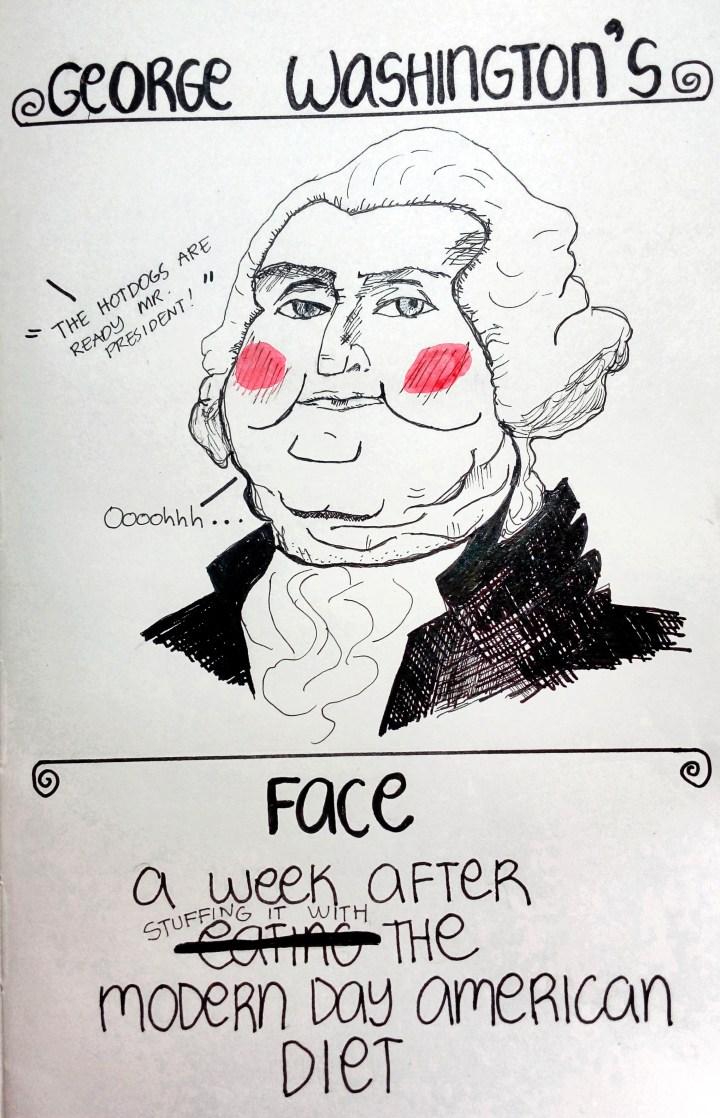 GEORGE WASHINGTON'S
"THE HOTDOGS ARE
READY MR.
PRESIDENT!"
Oooohhh...
FACE
a week AFTER
STUFFING IT WITH
eating THE
MODERN DAY AMERICAN
DIET